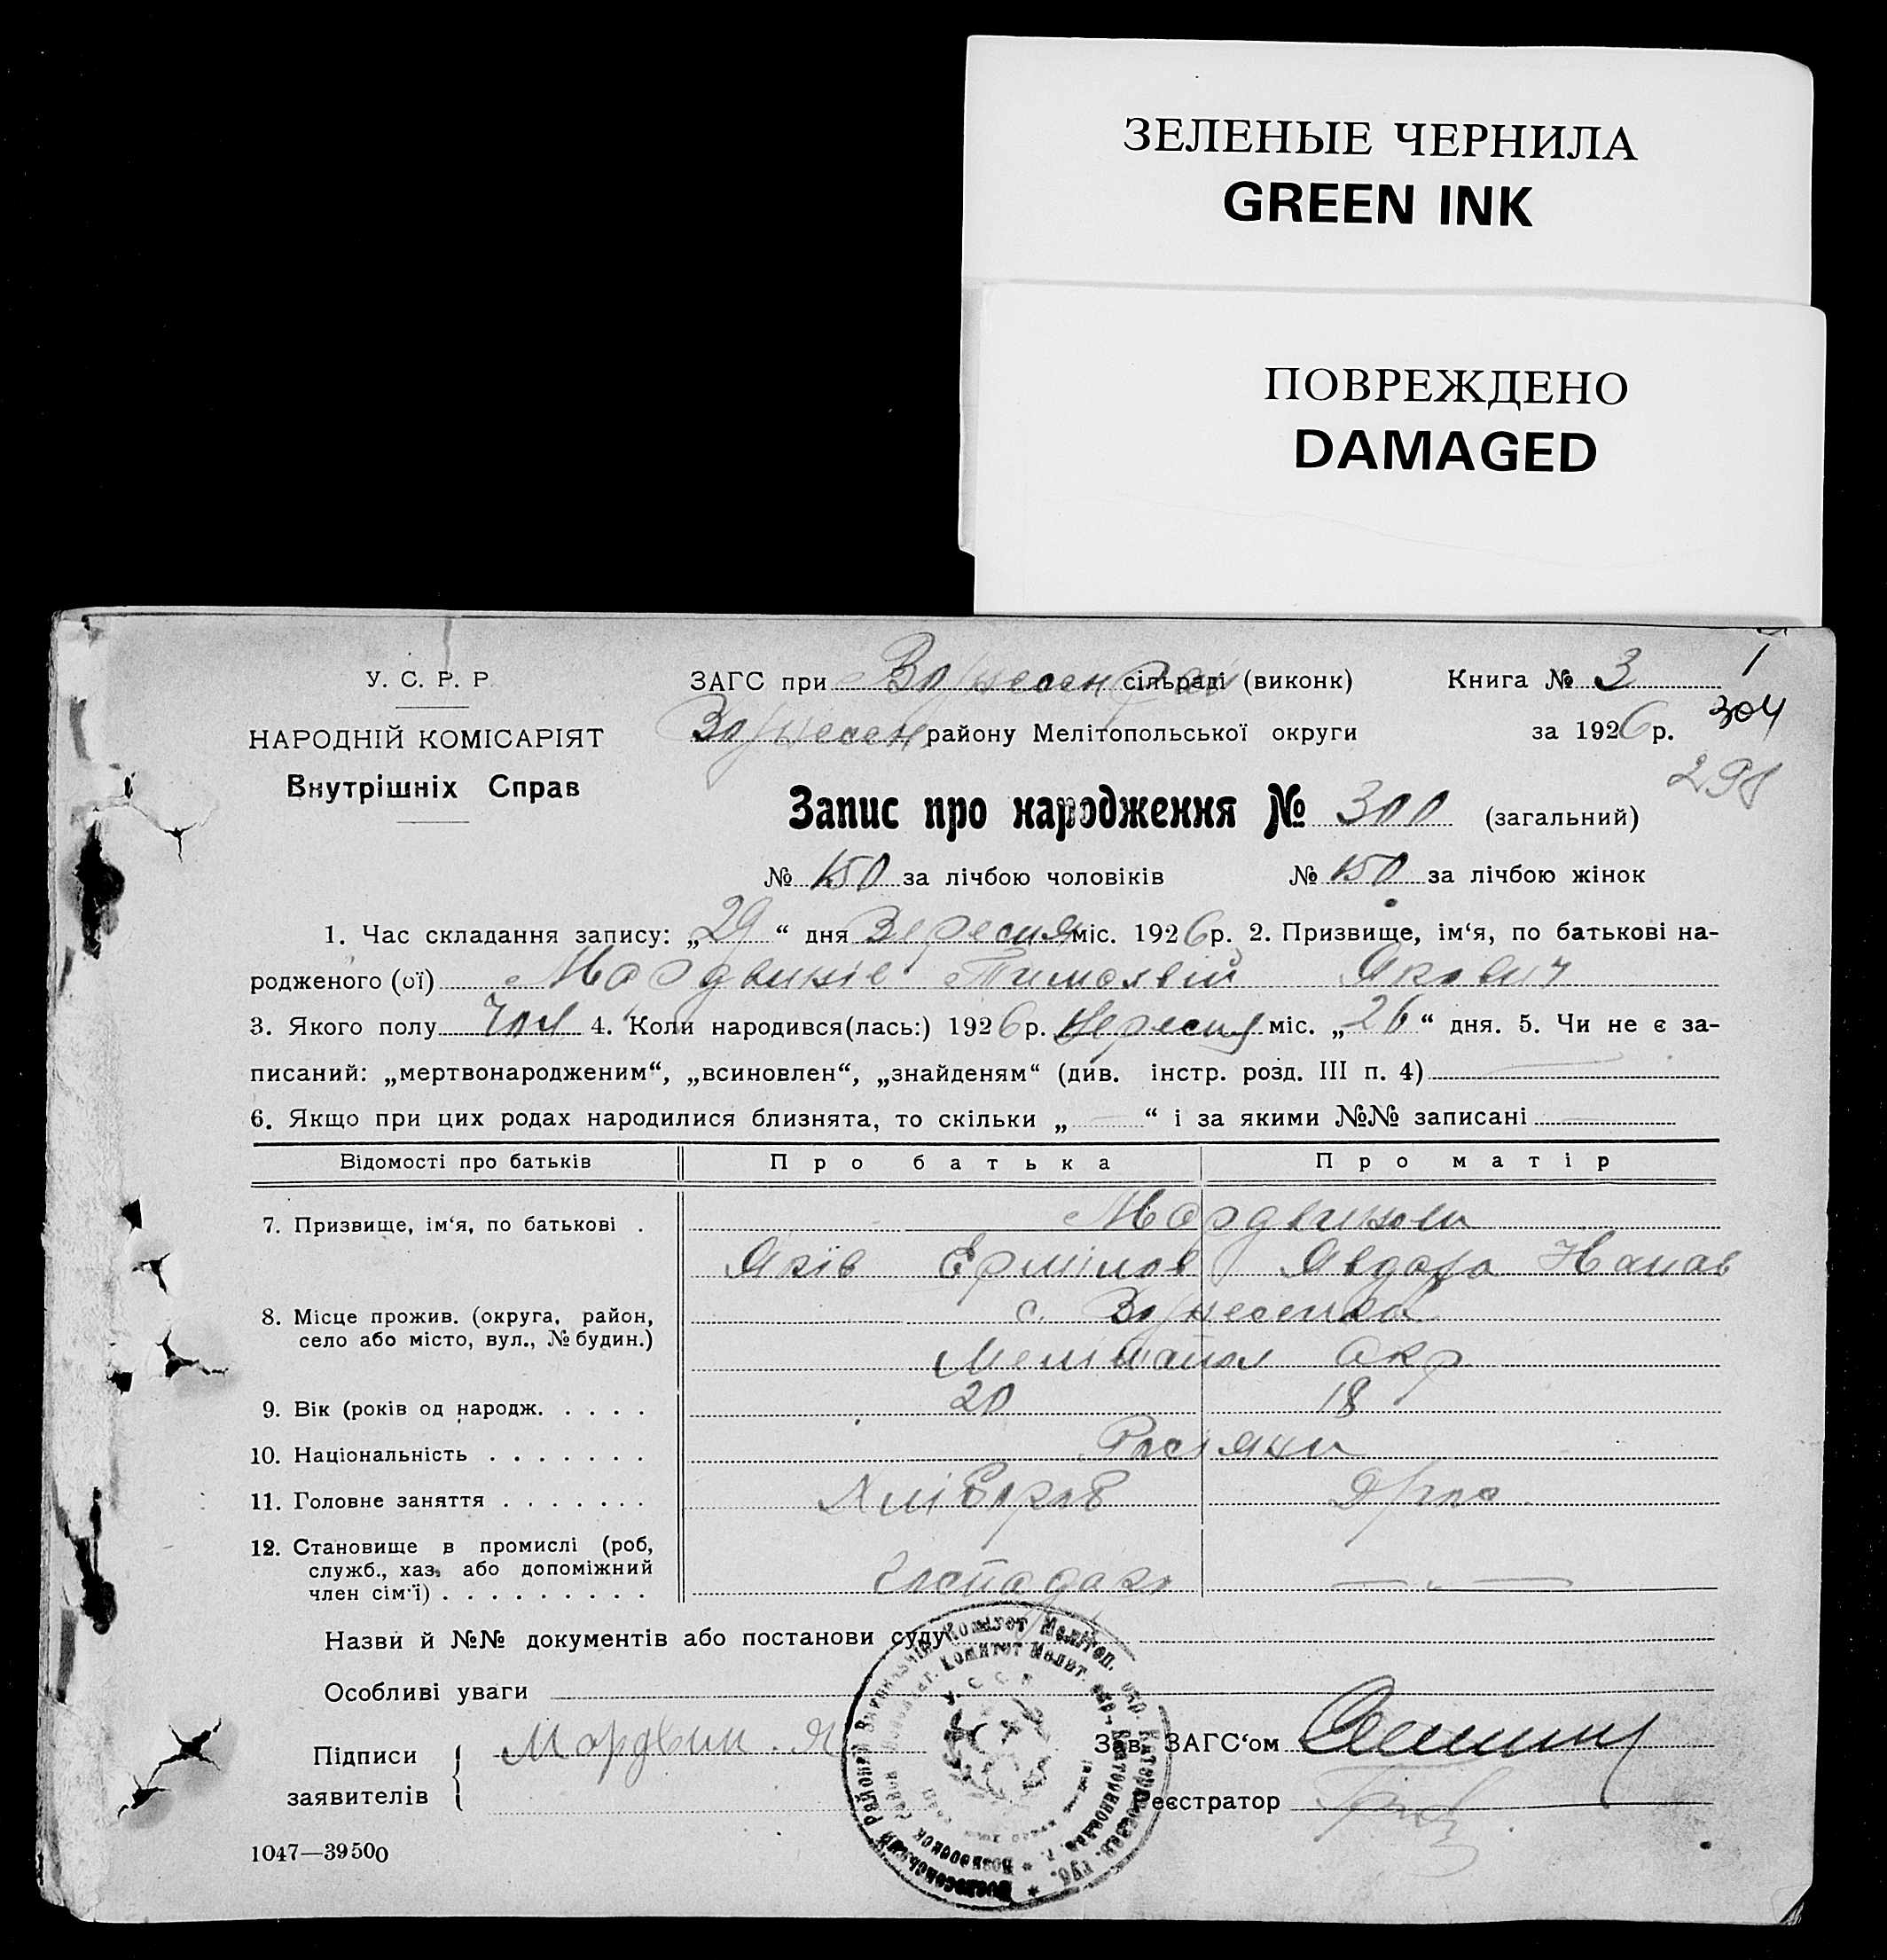 ЗЕЛЕНЫЕ ЧЕРНИЛА
GREEN INK
ПОВРЕЖДЕНО
DAMAGED
У. С. Р. Р.
НАРОДНІЙ КОМІСАРІЯТ
Внутрішніх Справ
ЗАГС при Вознесен сільраді (виконк) Книга № 3
1
Вознесен району Мелітопольської округи за 1926 р. 304
298
Запис про народження № 300 (загальний)
№ 150 за лічбою чоловіків № 150 за лічбою жінок
1. Час складання запису: „29“ дня Вересня міс. 1926 р. 2. Призвище, ім‘я, по батькові на-
родженого (ої) Мордвинів Тимофій Якович
3. Якого полу Чол 4. Коли народився(лась:) 1926 р. Вересня міс. „26“ дня. 5. Чи не є за-
писаний: „мертвонародженим“, „всиновлен“, „знайденям“ (див. інстр. розд. III п. 4)
6. Якщо при цих родах народилися близнята, то скільки „ — “ і за якими №№ записані —
Відомості про батьків Про батька Про матір
7. Призвище, ім‘я, по батькові . Мордвинови
Яків Ермілов Явдоха
8. Місце прожив. (округа, район, с. Вознесенка
село або місто, вул., № будин.)
Мелітопол Окр
9. Вік (років од народж. . . . . 20 18
10. Національність . . . . . . . Росіяни
11. Головне заняття . . . . . . . Хлібороб
12. Становище в промислі (роб,
служб., хаз, або допоміжний
член сім‘ї) . . . . . . . . . Господарь — „ —
Назви й №№ документів або постанови суду
Особливі уваги
Підписи Мордвин. Я Зав. ЗАГС‘ом
заявителів Реєстратор
1047—39500